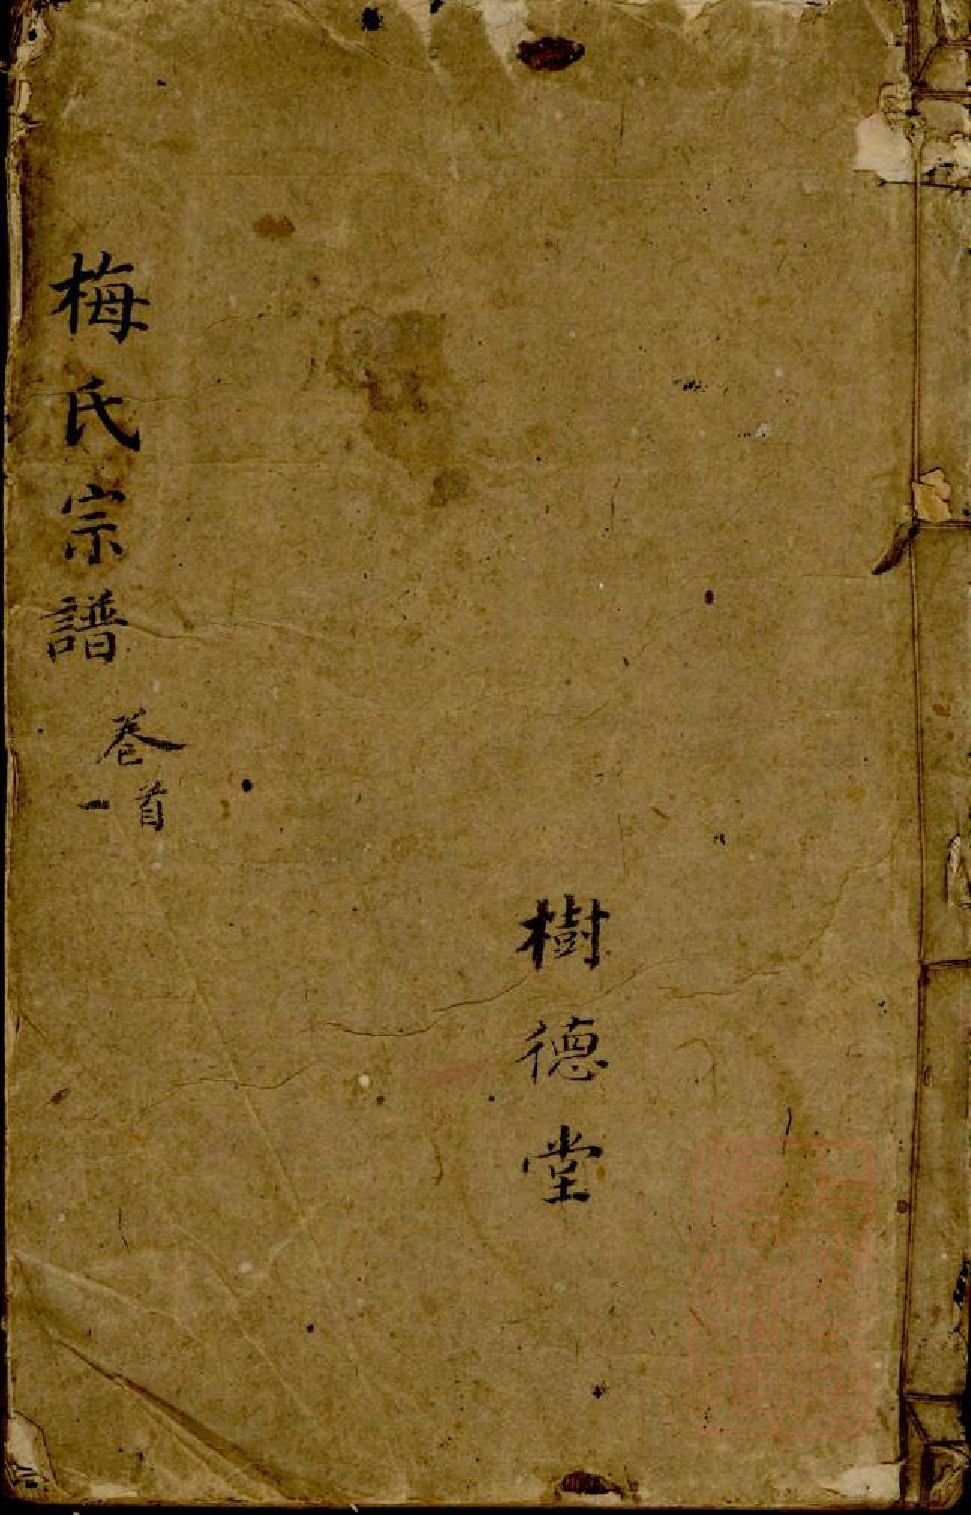 樹德堂
梅氏宗譜
卷首一